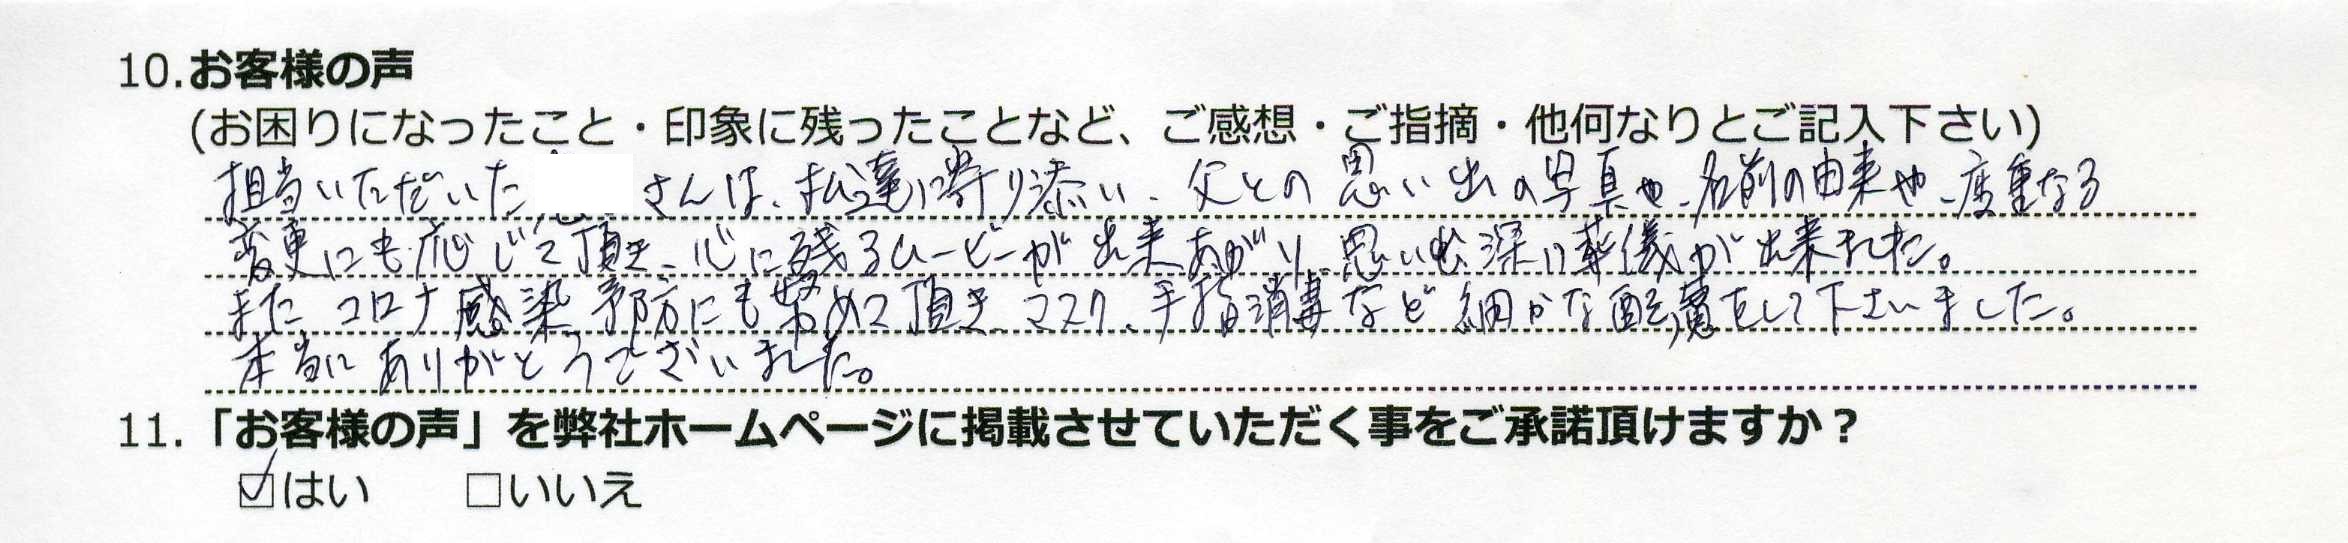 10.お客様の声
(お困りになったこと・印象に残ったことなど、ご感想・ご指摘・他何なりとご記入下さい)
担当いただいた さんは、私達に寄り添い、父との思い出の写真や、名前の由来や、度重なる
変更にも応じて頂き、心に残るムービーが出来あがり、思い出深い葬儀が出来ました。
また、コロナ感染予防にも努めて頂き、マスク、手指消毒など細かな配慮をして下さいました。
本当にありがとうございました。
11.「お客様の声」を弊社ホームページに掲載させていただく事をご承諾頂けますか？
☑はい □いいえ